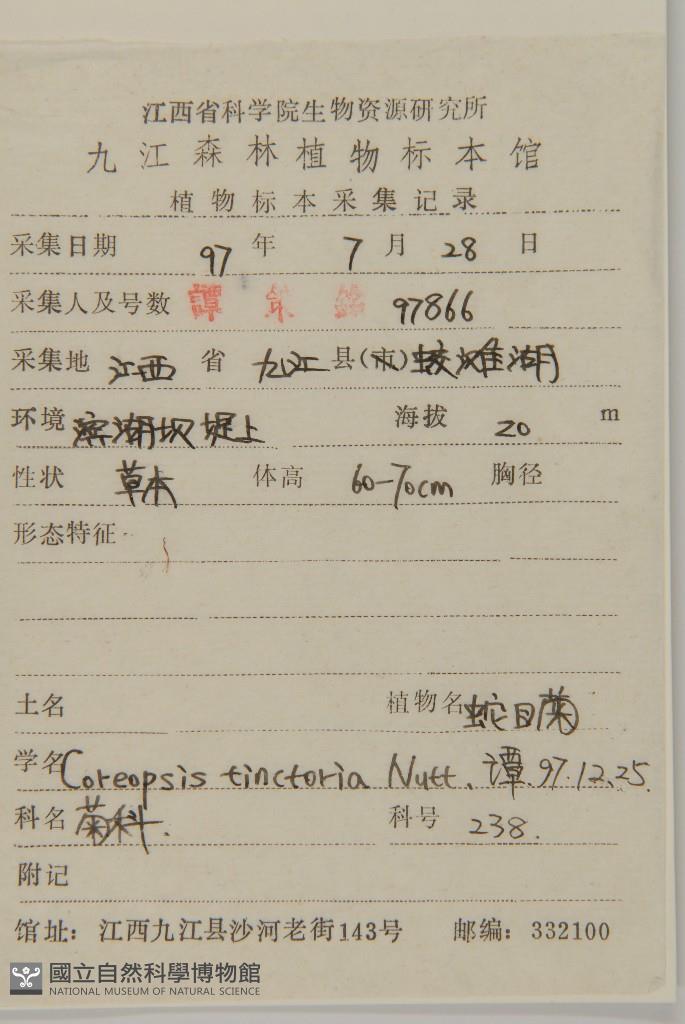 江西省科学院生物资源研究所
九江森林植物标本馆
植物标本采集记录
采集日期 97 年 7 月 28 日
采集人及号数 譚 97866
采集地 江西 省 九江 县(市) 蛟滩湖
环境 滨湖坝堤上 海拔 20 m
性状 草本 体高 60-70cm 胸径
形态特征
土名 植物名 蛇目菊
学名 Coreopsis tinctoria Nutt. 谭.97.12.25.
科名 菊科. 科号 238.
附记
馆址：江西九江县沙河老街143号 邮编：332100
國立自然科學博物館
NATIONAL MUSEUM OF NATURAL SCIENCE